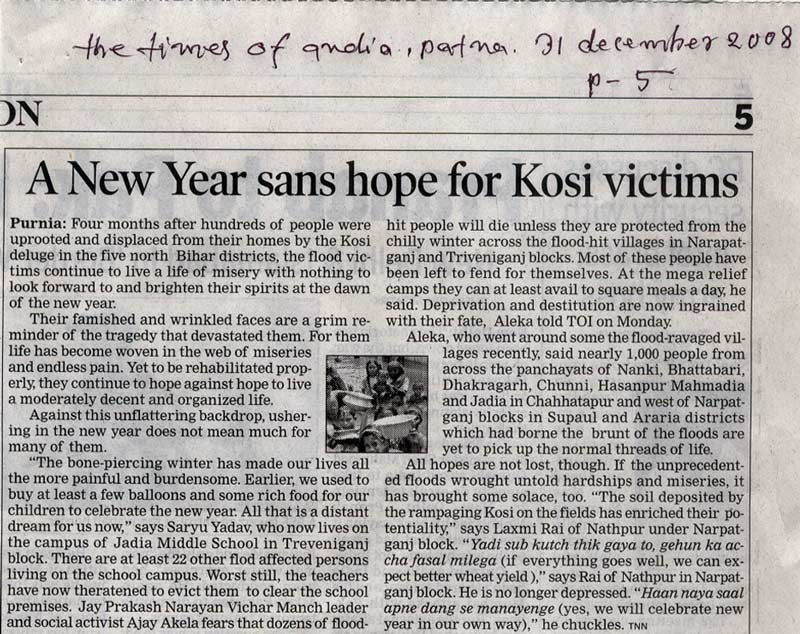 the times of india, patna. 31 december 2008
p-5
ON
5
A New Year sans hope for Kosi victims
Purnia: Four months after hundreds of people were
uprooted and displaced from their homes by the Kosi
deluge in the five north Bihar districts, the flood vic-
tims continue to live a life of misery with nothing to
look forward to and brighten their spirits at the dawn
of the new year.
Their famished and wrinkled faces are a grim re-
minder of the tragedy that devastated them. For them
life has become woven in the web of miseries
and endless pain. Yet to be rehabilitated prop-
erly, they continue to hope against hope to live
a moderately decent and organized life.
Against this unflattering backdrop, usher-
ing in the new year does not mean much for
many of them.
"The bone-piercing winter has made our lives all
the more painful and burdensome. Earlier, we used to
buy at least a few balloons and some rich food for our
children to celebrate the new year. All that is a distant
dream for us now," says Saryu Yadav, who now lives on
the campus of Jadia Middle School in Treveniganj
block. There are at least 22 other flod affected persons
living on the school campus. Worst still, the teachers
have now theratened to evict them to clear the school
premises. Jay Prakash Narayan Vichar Manch leader
and social activist Ajay Akela fears that dozens of flood-
hit people will die unless they are protected from the
chilly winter across the flood-hit villages in Narapat-
ganj and Triveniganj blocks. Most of these people have
been left to fend for themselves. At the mega relief
camps they can at least avail to square meals a day, he
said. Deprivation and destitution are now ingrained
with their fate, Aleka told TOI on Monday.
Aleka, who went around some the flood-ravaged vil-
lages recently, said nearly 1,000 people from
across the panchayats of Nanki, Bhattabari,
Dhakragarh, Chunni, Hasanpur Mahmadia
and Jadia in Chahhatapur and west of Narpat-
ganj blocks in Supaul and Araria districts
which had borne the brunt of the floods are
yet to pick up the normal threads of life.
All hopes are not lost, though. If the unprecedent-
ed floods wrought untold hardships and miseries, it
has brought some solace, too. "The soil deposited by
the rampaging Kosi on the fields has enriched their po-
tentiality," says Laxmi Rai of Nathpur under Narpat-
ganj block. "Yadi sub kutch thik gaya to, gehun ka ac-
cha fasal milega (if everything goes well, we can ex-
pect better wheat yield )," says Rai of Nathpur in Narpat-
ganj block. He is no longer depressed. "Haan naya saal
apne dang se manayenge (yes, we will celebrate new
year in our own way)," he chuckles. TNN